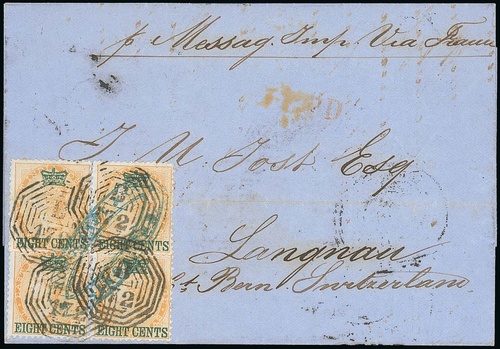 p Messag. Imp. Via France
PAID
J U Jost Esq
Langnau
Ct Bern Switzerland
EIGHT CENTS EIGHT CENTS
EIGHT CENTS EIGHT CENTS